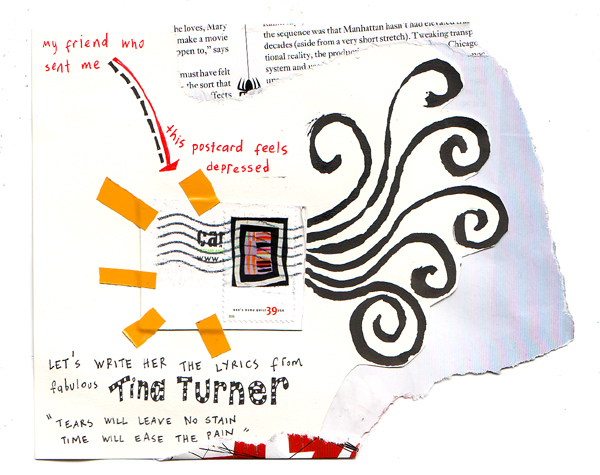 he loves, Mary
make a movie
open to," says
must have felt
the sort that
ffects
the sequence was that Manhattan hasn't had elevated
decades (aside from a very short stretch). Tweaking transp
tional reality, the produc
Chicago
system and
my friend who
sent me
this postcard feels
depressed
Car
www.
39
LET'S WRITE HER THE LYRICS from
fabulous Tina Turner
"TEARS WILL LEAVE NO STAIN
TIME WILL EASE THE PAIN"